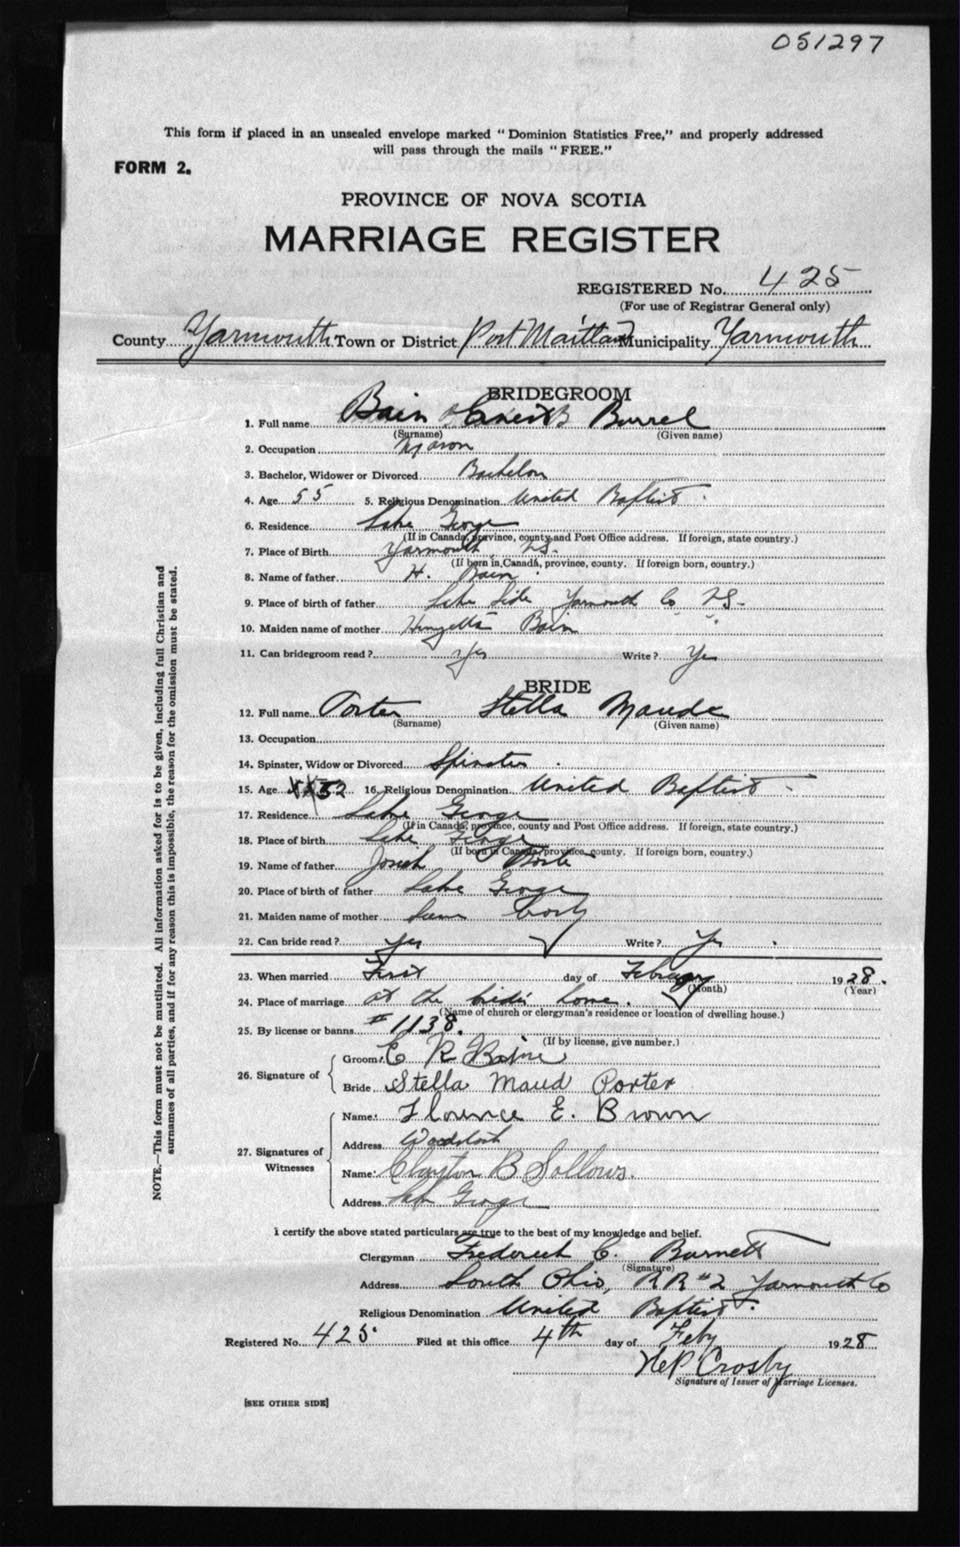 051297
This form if placed in an unsealed envelope marked "Dominion Statistics Free," and properly addressed
will pass through the mails "FREE."
FORM 2.
PROVINCE OF NOVA SCOTIA
MARRIAGE REGISTER
REGISTERED No. 425
(For use of Registrar General only)
County Yarmouth Town or District Port Maitland Municipality Yarmouth
BRIDEGROOM
1. Full name Bain Burrel
(Surname) (Given name)
2. Occupation Mason
3. Bachelor, Widower or Divorced Bachelor
4. Age 55 5. Religious Denomination United Baptist
6. Residence Lake George
(If in Canada, province, county and Post Office address. If foreign, state country.)
7. Place of Birth Yarmouth N.S.
(If born in Canada, province, county. If foreign born, country.)
8. Name of father H. Bain
9. Place of birth of father Lake Side Yarmouth Co N.S.
10. Maiden name of mother Bain
11. Can bridegroom read? Yes Write? Yes
BRIDE
12. Full name Porter Stella Maude
(Surname) (Given name)
13. Occupation
14. Spinster, Widow or Divorced Spinster
15. Age 52 16. Religious Denomination United Baptist
17. Residence Lake George
(If in Canada, province, county and Post Office address. If foreign, state country.)
18. Place of birth Lake George
(If born in Canada, province, county. If foreign born, country.)
19. Name of father Josiah Porter
20. Place of birth of father Lake George
21. Maiden name of mother
22. Can bride read? Yes Write? Yes
23. When married First day of February 1928.
(Month) (Year)
24. Place of marriage at the bride's home.
(Name of church or clergyman's residence or location of dwelling house.)
25. By license or banns #1138.
(If by license, give number.)
26. Signature of
Groom
Bride Stella Maud Porter
27. Signatures of Witnesses
Name Florence E. Brown
Address Woodstock
Name Clayton B Sollows.
Address Lake George
I certify the above stated particulars are true to the best of my knowledge and belief.
Clergyman Frederick C. Burnett
(Signature)
Address South Ohio, RR #2 Yarmouth Co
Religious Denomination United Baptist.
Registered No. 425. Filed at this office 4th day of Feby 1928
Crosby
Signature of Issuer of Marriage Licenses.
[SEE OTHER SIDE]
NOTE.—This form must not be mutilated. All information asked for is to be given, including full Christian and
surnames of all parties, and if for any reason this is impossible, the reason for the omission must be stated.